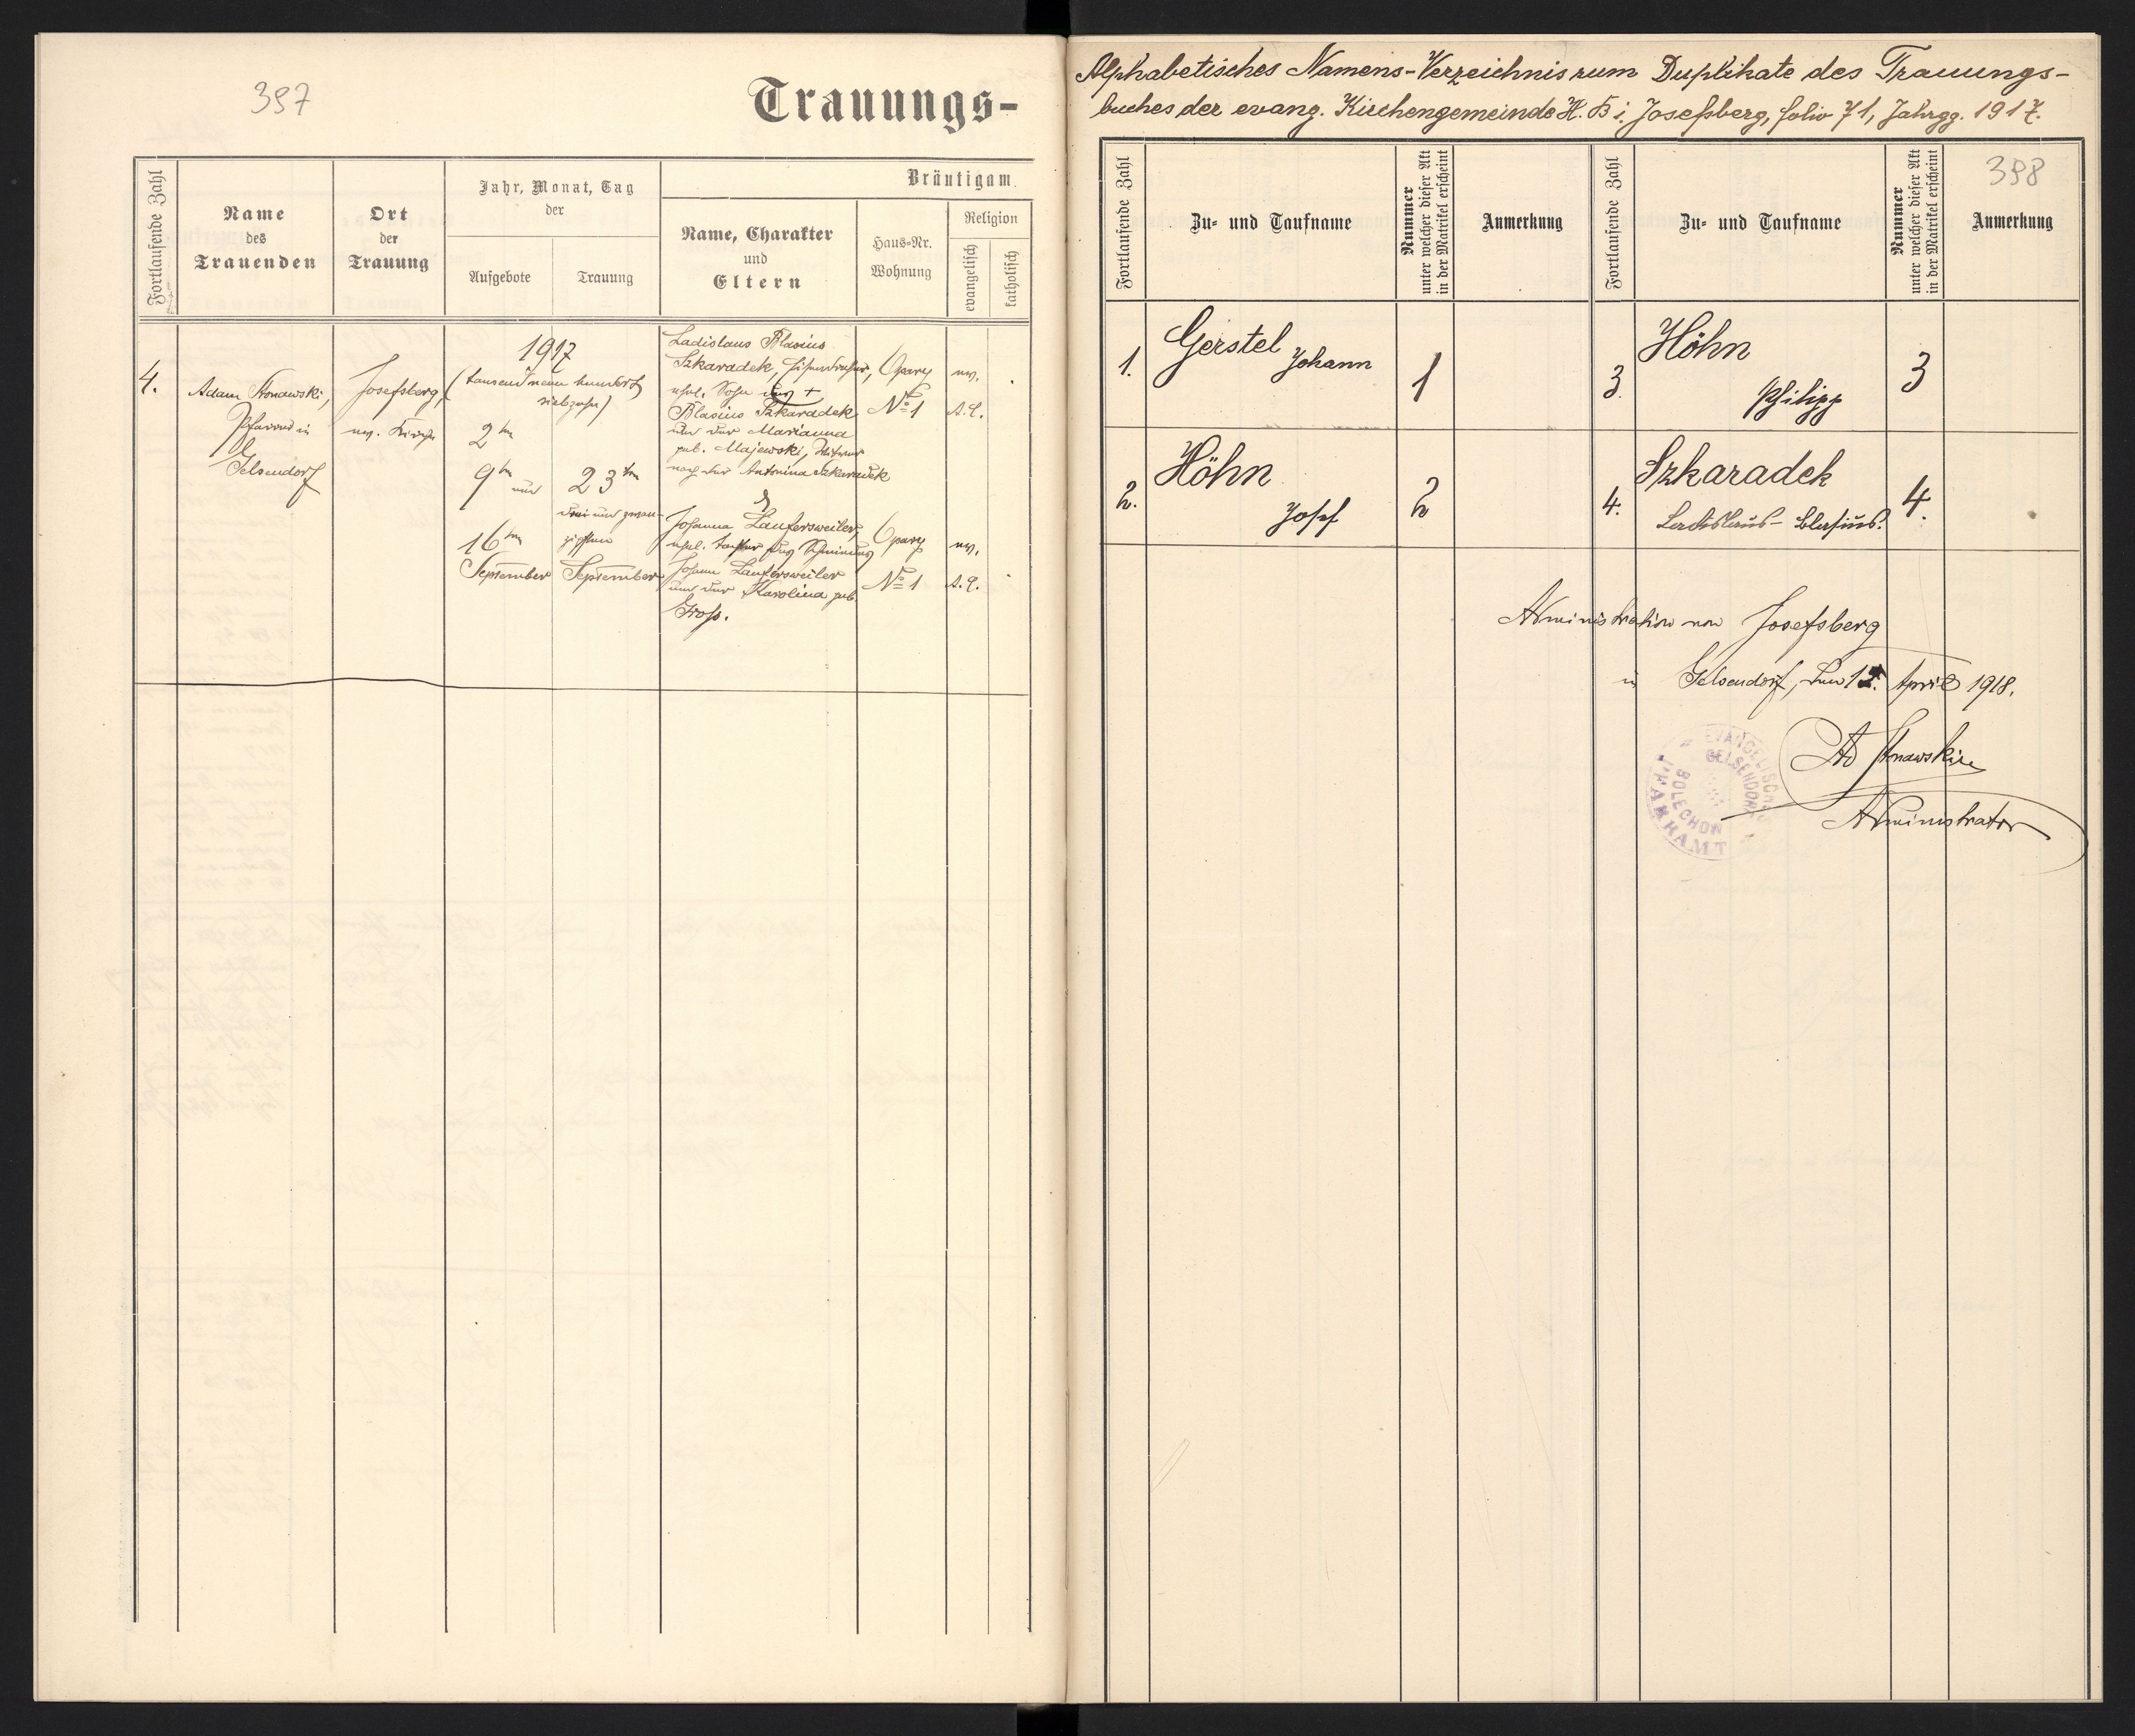 397
Trauungs-
Fortlaufende Zahl
Name
des
Trauenden
Ort
der
Trauung
Jahr, Monat, Tag
der
Aufgebote
Trauung
Bräutigam
Name, Charakter
und
Eltern
Haus-Nr.
Wohnung
Religion
evangelisch
katholisch
4.
Adam Stonawski,
Pfarrer in
Gelsendorf
Josefsberg,
ev. Kirche
1917
(tausend neun hundert
siebzehn)
2ten
9ten und
16ten
September
23ten
drei und zwan-
zigsten
September
Ladislaus Blasius
Szkaradek,
ehel. Sohn des +
Blasius Szkaradek
und der Marianna
geb. Majewski, Witwer
nach der Antonina Szkaradek
&
Johanna Laufersweiler,
ehel. Tochter des
Johann Laufersweiler
und der Karolina geb.
Gross.
Opary
No 1
ev.
A.C.
Opary
No 1
ev.
A.C.
Alphabetisches Namens-Verzeichnis zum Duplikate des Trauungs-
buches der evang. Kirchengemeinde H. B i. Josefsberg, folio 71, Jahrgg. 1917.
398
Fortlaufende Zahl
Zu- und Taufname
Nummer
unter welcher dieser Akt
in der Matrikel erscheint
Anmerkung
Fortlaufende Zahl
Zu- und Taufname
Nummer
unter welcher dieser Akt
in der Matrikel erscheint
Anmerkung
1.
Gerstel
Johann
1
3.
Höhn
Philipp
3
2.
Höhn
Josef
2
4.
Szkaradek
Ladislaus-Blasius.
4.
Administration von Josefsberg
in Gelsendorf, den April 1918.
Ad Stonawski
Administrator
EVANGELISCHES
PFARRAMT
GELSENDORF
BOLECHOW